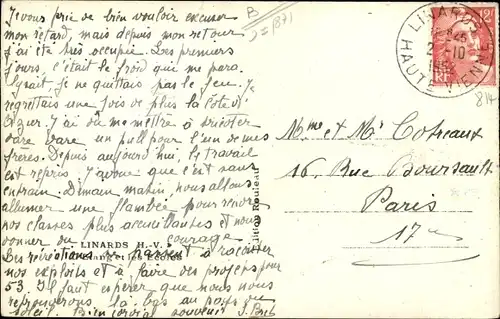 Je vous prie de bien vouloir excuser
mon retard, mais depuis mon retour
j'ai été très occupée. Les premiers
jours, c'était le froid qui me para
lysait, je ne quittais pas le feu. Je
regrettais une fois de plus la Côte d'
Azur. J'ai dû me mettre à tricoter
dare dare un pull pour l'un de mes
frères. Depuis aujourd'hui, le travail
est repris. J'avoue que c'est sans
entrain. Demain matin, nous allons
allumer une flambée pour rendre
nos classes plus accueillantes et nous
donner du courage.
LINARDS H.-V.
Les récréations se passent à raconter
nos exploits et à faire des projets pour
53. Il faut espérer que nous nous
retrouverons là-bas au pays du
soleil. Bien cordial souvenir
B
LINARDS
HAUTE VIENNE
12F
RF
Mme et Mr Cotreaux
16 Rue Boursault
Paris
17e